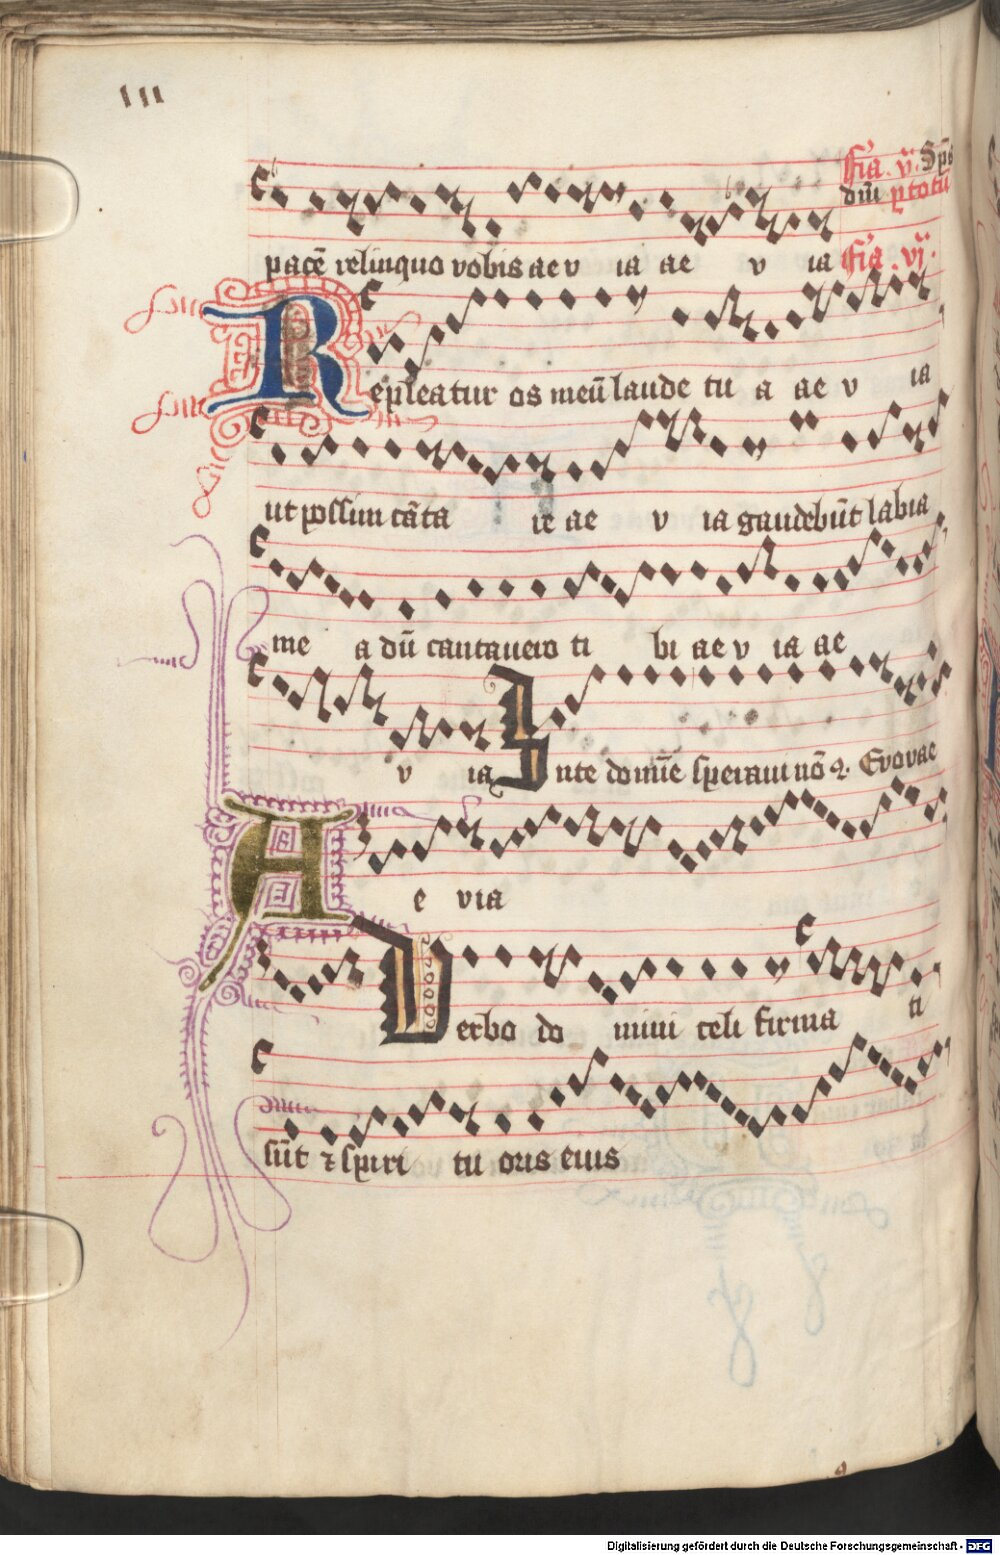 III
fia. v. Sps
dñi p totũ
pacē relinquo vobis ae v ia ae v ia fia. vj.
Repleatur os meũ laude tu a ae v ia
ut possim cāta re ae v ia gaudebūt labia
me a dū cantavero ti bi ae v ia ae
v ia In te domīe speravi nō Evovae
A e via
Verbo do mini celi firma ti
sūt ⁊ spiri tu oris eius
Digitalisierung gefördert durch die Deutsche Forschungsgemeinschaft - DFG